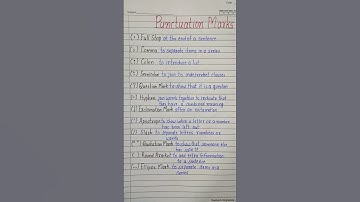 Punctuation Marks
(•) Full Stop at the end of a sentence
(,) Comma to separate items in a series
(:) Colon to introduce a list
(;) Semicolon to join to independent clauses
(?) Question Mark to show that it is a question
(-) Hyphen join words together to indicate that
they have a combined meaning
(!) Exclamation Mark after an exclamation
(') Apostrophe to show when a letter or a number
has been left out
(/) Slash to separate letters, numbers or
words
(" ") Quotation Mark to show that someone else
has said it
( ) Round Bracket to add extra information
to a sentence
(...) Ellipsis Mark to separate items in a
series